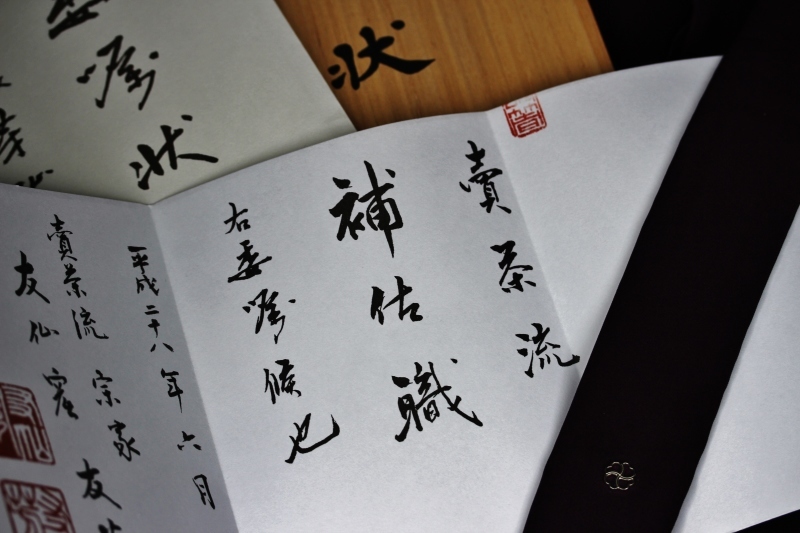 賣茶流
補佐職
右委嘱候也
平成二十八年六月
賣茶流 宗家 友
友仙窟
委嘱状
状